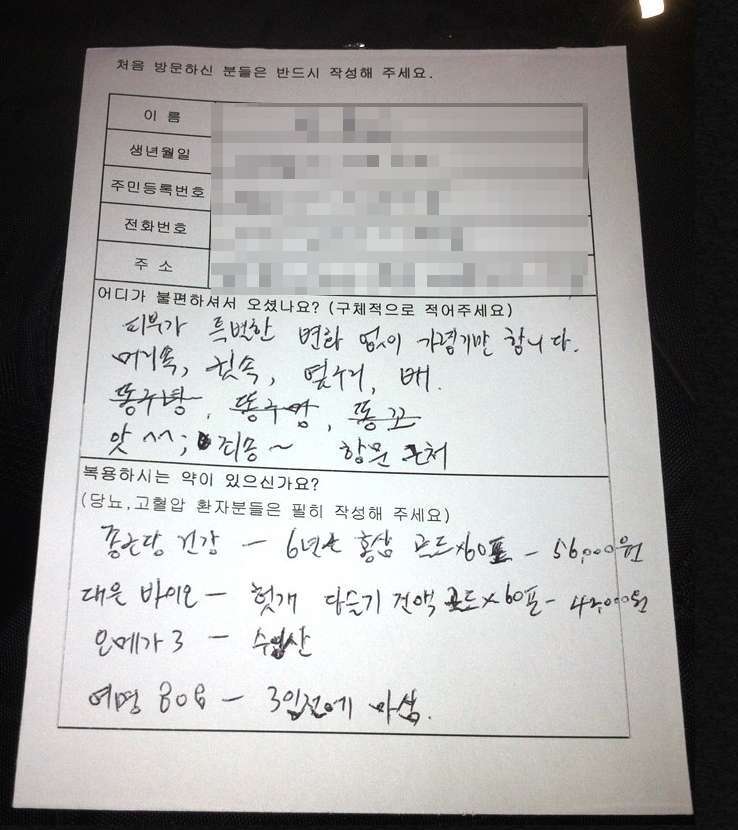 처음 방문하신 분들은 반드시 작성해 주세요.
이 름
생년월일
주민등록번호
전화번호
주 소
어디가 불편하셔서 오셨나요? (구체적으로 적어주세요)
피부가 특별한 변화 없이 가렵기만 합니다.
머리속, 귓속, 옆구리, 배.
똥구녕, 똥구멍, 똥꼬
앗 ^^; 죄송~ 항문 근처
복용하시는 약이 있으신가요?
(당뇨,고혈압 환자분들은 필히 작성해 주세요)
종근당 건강 - 6년근 홍삼 골드x60포 - 56,000원
대웅 바이오 - 헛개 다슬기 진액 골드x60포 - 42,000원
오메가 3 - 수입산
여명 808 - 3일전에 마심.